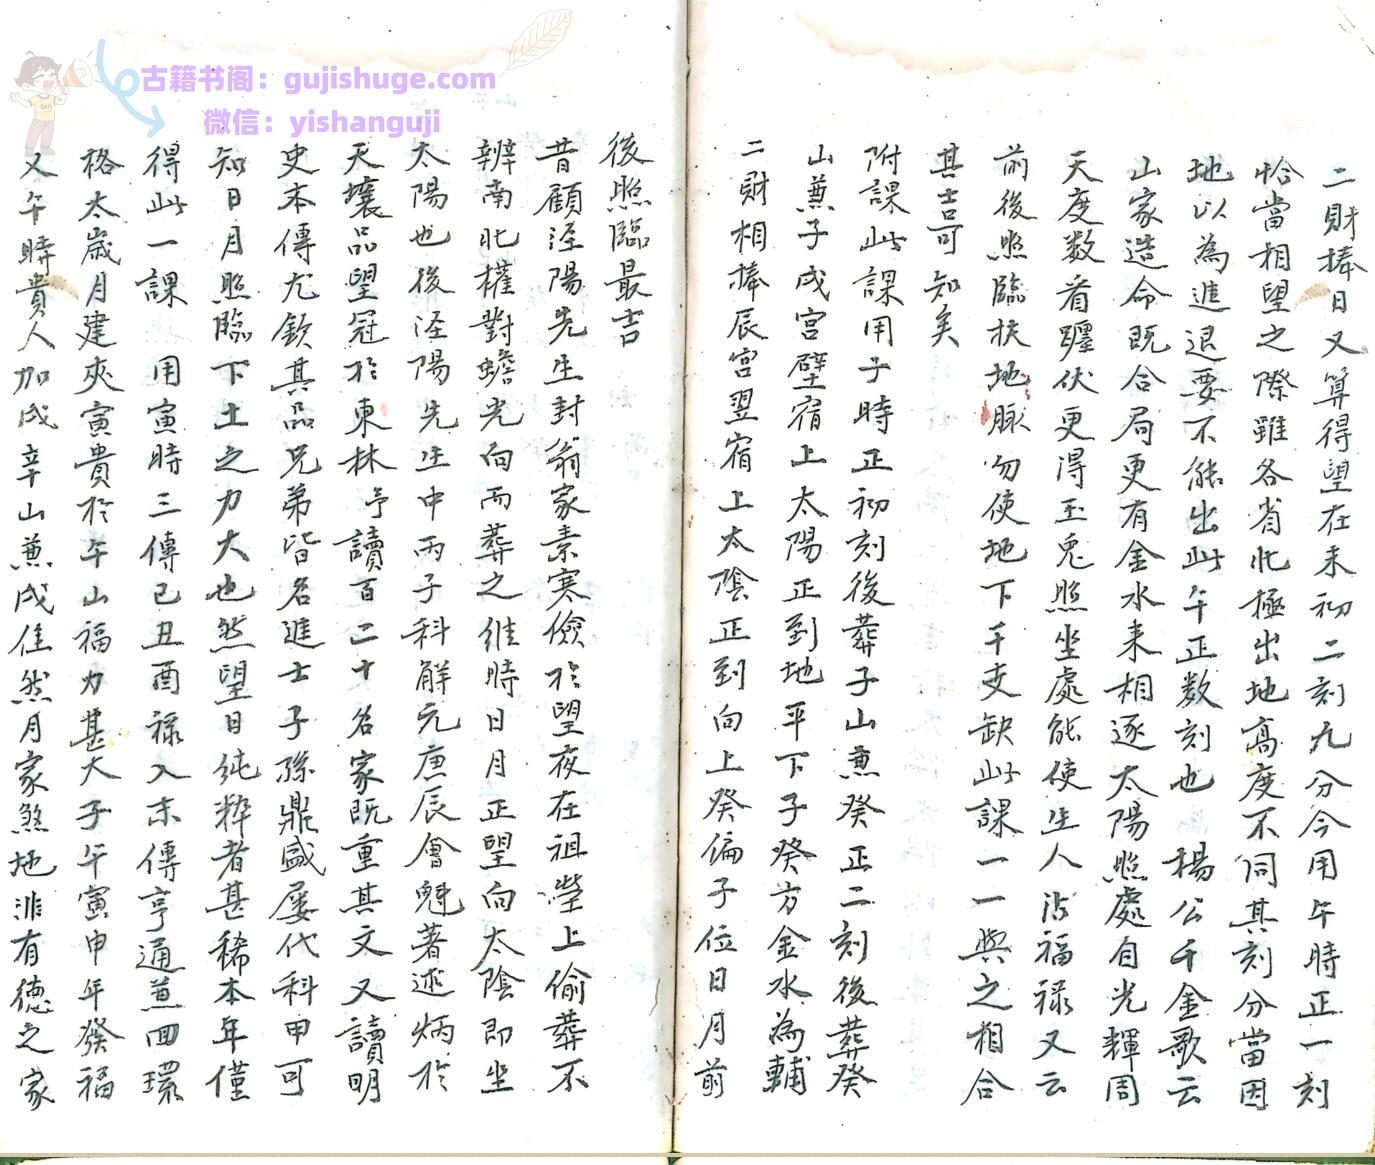 古籍书阁：gujishuge.com
微信：yishanguji
二財捧日又算得望在未初二刻九分今用午時正一刻
恰當相望之際雖各省北極出地高度不同其刻分當因
地以為進退要不能出此午正数刻也　楊公千金歌云
山家造命既合局更有金水来相逐太陽照處自光輝周
天度数看躔伏更得玉兎照坐處能使生人沾福禄又云
前後照臨扶地脉勿使地下千支缺此課一一與之相合
其吉可知矣
附課此課用子時正初刻後葬子山兼癸正二刻後葬癸
山兼子戌宮壁宿上太陽正到地平下子癸方金水為輔
二財相捧辰宮翌宿上太陰正到向上癸偏子位日月前
後照臨最吉
昔顧涇陽先生封翁家素寒儉於望夜在祖塋上偷葬不
辨南北權對蟾光向而葬之維時日月正望向太陰即坐
太陽也後涇陽先生中丙子科解元庚辰會魁著述炳於
天壤品望冠於東林予讀百二十名家既重其文又讀明
史本傳尤欽其品兄弟皆名進士子孫鼎盛屡代科甲可
知日月照臨下土之力大也然望日純粹者甚稀本年僅
得此一課　用寅時三傳巳丑酉禄入末傳亨通兼回環
格太歲月建夾寅貴於午山福力甚大子午寅申年發福
又午時貴人加戌辛山兼戌佳然月家煞地非有德之家